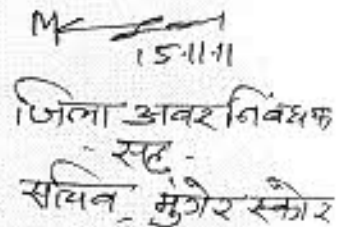 15-11-11
जिला अवर निबंधक
- सह -
सचिव, मुंगेर स्कोर